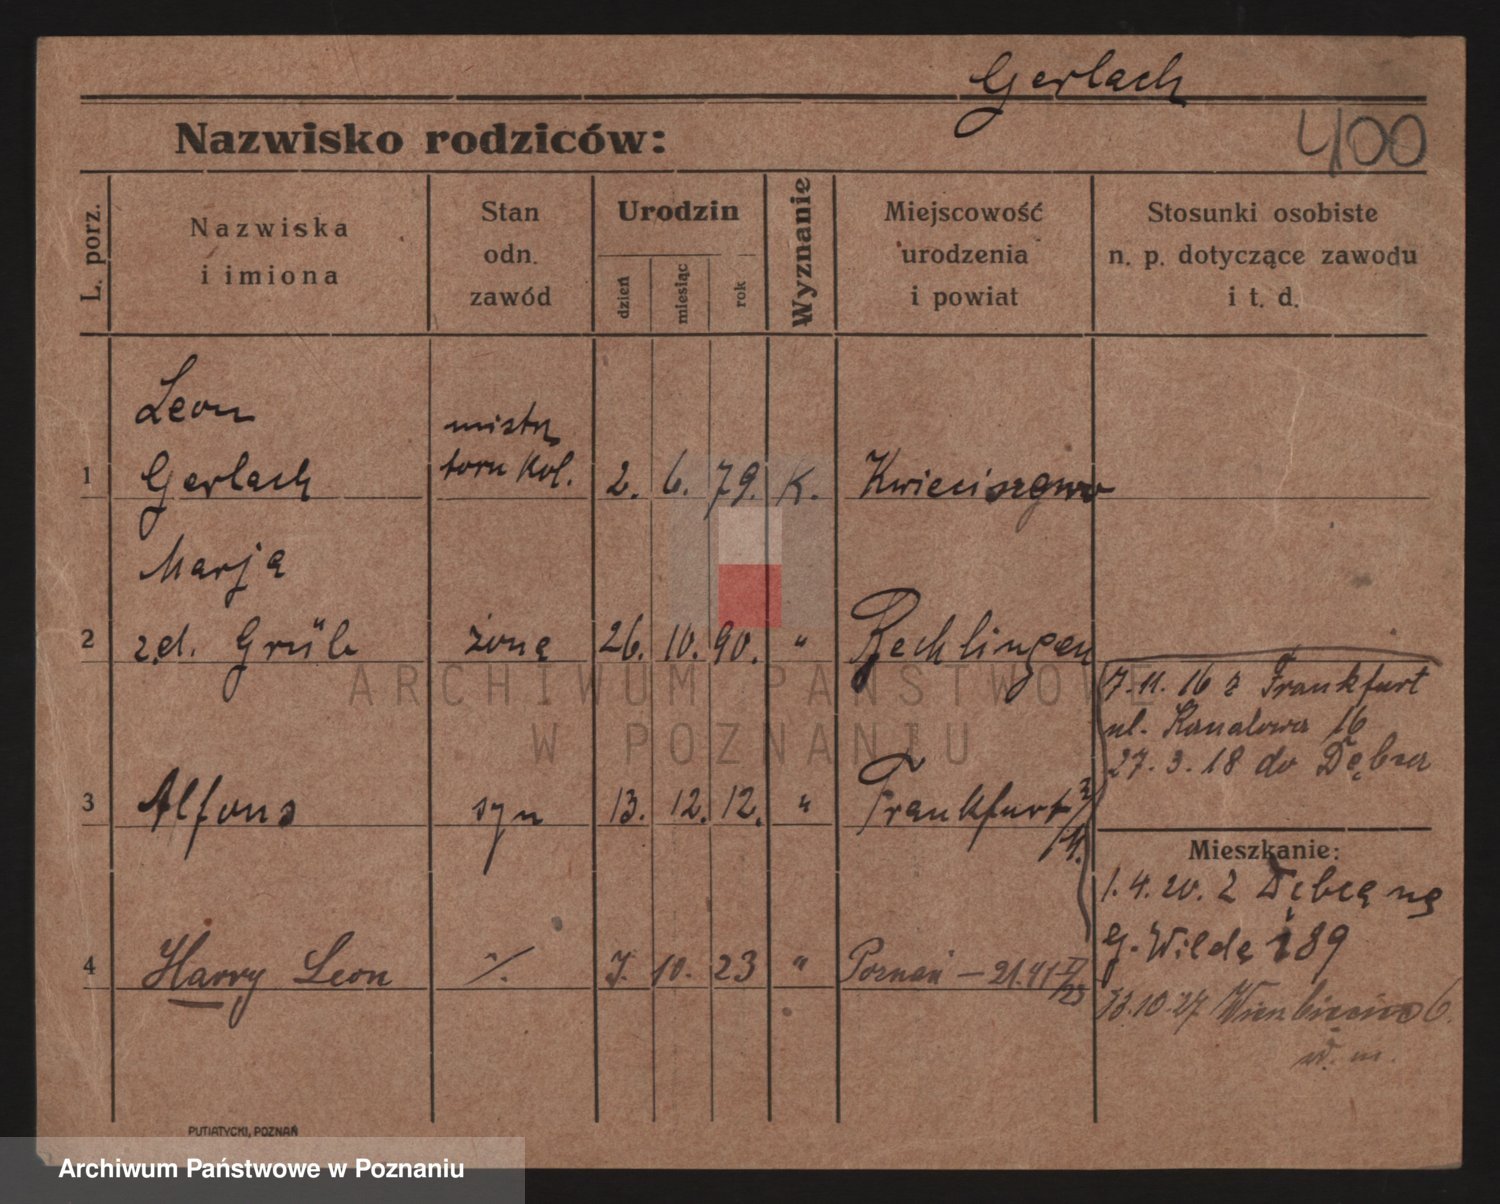 Gerlach
400
Nazwisko rodziców:
L. porz.
Nazwiska
i imiona
Stan
odn.
zawód
Urodzin
dzień
miesiąc
rok
Wyznanie
Miejscowość
urodzenia
i powiat
Stosunki osobiste
n. p. dotyczące zawodu
i t. d.
Leon
mistrz
1 Gerlach toru kol. 2. 6. 79. K. Kwieciszewo
Marja
2 z d. Grüb żona 26. 10. 90. " Rechlingen
7.11.16 z Frankfurt
ul. Kanałowa 16
27.3.18 do Dębca
3 Alfons syn 13. 12. 12. " Frankfurt
Mieszkanie:
1.4.20. z Dębca na
G. Wilda 89
4 Harry Leon 7. 10. 23 " Poznań
13.10.27 6.
w. m.
PUTIATYCKI, POZNAŃ
ARCHIWUM PAŃSTWOWE
W POZNANIU
Archiwum Państwowe w Poznaniu